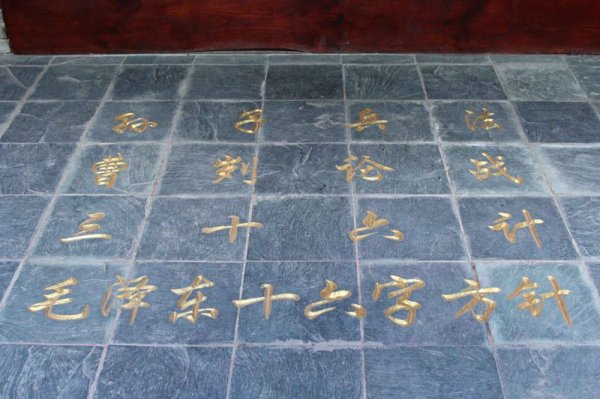 孙子兵法
曹刿论战
三十六计
毛泽东十六字方针